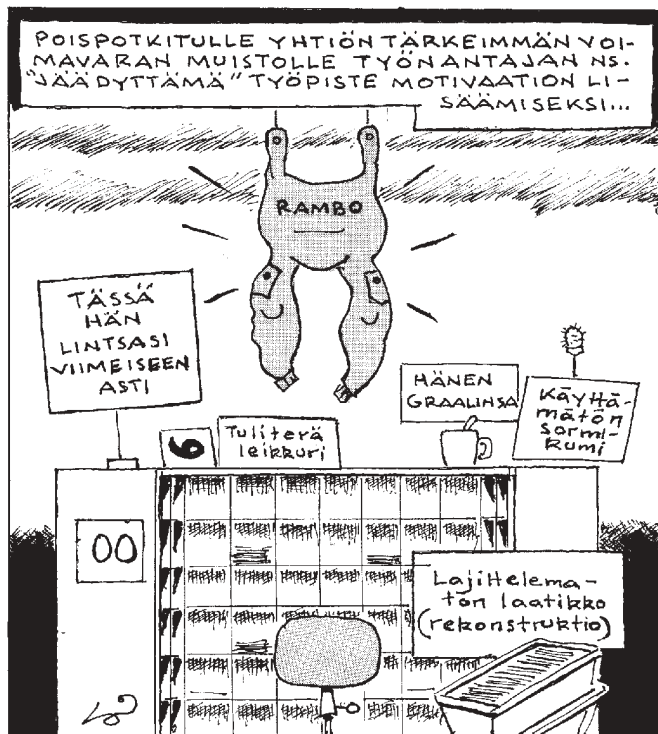 POISPOTKITULLE YHTIÖN TÄRKEIMMÄN VOI-
MAVARAN MUISTOLLE TYÖNANTAJAN NS.
"JÄÄDYTTÄMÄ" TYÖPISTE MOTIVAATION LI-
SÄÄMISEKSI...
RAMBO
TÄSSÄ
HÄN
LINTSASI
VIIMEISEEN
ASTI
HÄNEN
GRAALINSA
Käyttä-
mätön
sormi-
kumi
6
Tuliterä
leikkuri
00
Lajittelema-
tön laatikko
(rekonstruktio)